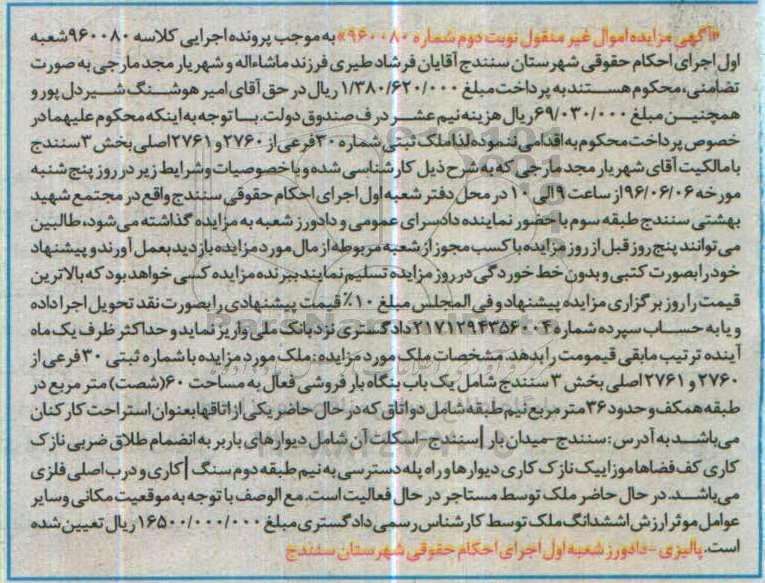 «آگهی مزایده اموال غیر منقول نوبت دوم شماره ۹۶۰۰۸۰» به موجب پرونده اجرایی کلاسه ۹۶۰۰۸۰ شعبه
اول اجرای احکام حقوقی شهرستان سنندج آقایان فرشاد طیری فرزند ماشاءاله و شهریار مجد مارجی به صورت
تضامنی، محکوم هستند به پرداخت مبلغ ۱/۳۸۰/۶۲۰/۰۰۰ ریال در حق آقای امیر هوشنگ شیردل پور و
همچنین مبلغ ۶۹/۰۳۰/۰۰۰ ریال هزینه نیم عشر در ف صندوق دولت. با توجه به اینکه محکوم علیهما در
خصوص پرداخت محکوم به اقدامی ننموده لذا ملک ثبتی شماره ۳۰ فرعی از ۲۷۶۰ و ۲۷۶۱ اصلی بخش ۳ سنندج
با مالکیت آقای شهریار مجد مارجی که به شرح ذیل کارشناسی شده و با خصوصیات و شرایط زیر در روز پنج شنبه
مورخه ۹۶/۰۶/۰۶ از ساعت ۹ الی ۱۰ در محل دفتر شعبه اول اجرای احکام حقوقی سنندج واقع در مجتمع شهید
بهشتی سنندج طبقه سوم با حضور نماینده دادسرای عمومی و دادورز شعبه به مزایده گذاشته می شود، طالبین
می توانند پنج روز قبل از روز مزایده با کسب مجوز از شعبه مربوطه از مال مورد مزایده بازدید بعمل آورند و پیشنهاد
خود را بصورت کتبی و بدون خط خوردگی در روز مزایده تسلیم نمایند ببرنده مزایده کسی خواهد بود که بالاترین
قیمت را روز برگزاری مزایده پیشنهاد و فی المجلس مبلغ ۱۰٪ قیمت پیشنهادی را بصورت نقد تحویل اجرا داده
و یا به حساب سپرده شماره ۲۱۷۱۲۹۴۳۵۶۰۰۴ دادگستری نزد بانک ملی واریز نماید و حداکثر ظرف یک ماه
آینده ترتیب مابقی قیمومت را بدهد. مشخصات ملک مورد مزایده: ملک مورد مزایده با شماره ثبتی ۳۰ فرعی از
۲۷۶۰ و ۲۷۶۱ اصلی بخش ۳ سنندج شامل یک باب بنگاه بار فروشی فعال به مساحت ۶۰ (شصت) متر مربع در
طبقه همکف و حدود ۳۶ متر مربع نیم طبقه شامل دو اتاق که در حال حاضر یکی از اتاقها بعنوان استراحت کارکنان
می باشد به آدرس: سنندج-میدان بار |سنندج-اسکلت آن شامل دیوارهای باربر به انضمام طلاق ضربی نازک
کاری کف فضاها موزاییک نازک کاری دیوارها و راه پله دسترسی به نیم طبقه دوم سنگ |کاری و درب اصلی فلزی
می باشد. در حال حاضر ملک توسط مستاجر در حال فعالیت است. مع الوصف با توجه به موقعیت مکانی و سایر
عوامل موثر ارزش اششدانگ ملک توسط کارشناس رسمی دادگستری مبلغ ۱۶۵۰۰/۰۰۰/۰۰۰ ریال تعیین شده
است. پالیزی-دادورز شعبه اول اجرای احکام حقوقی شهرستان سنندج